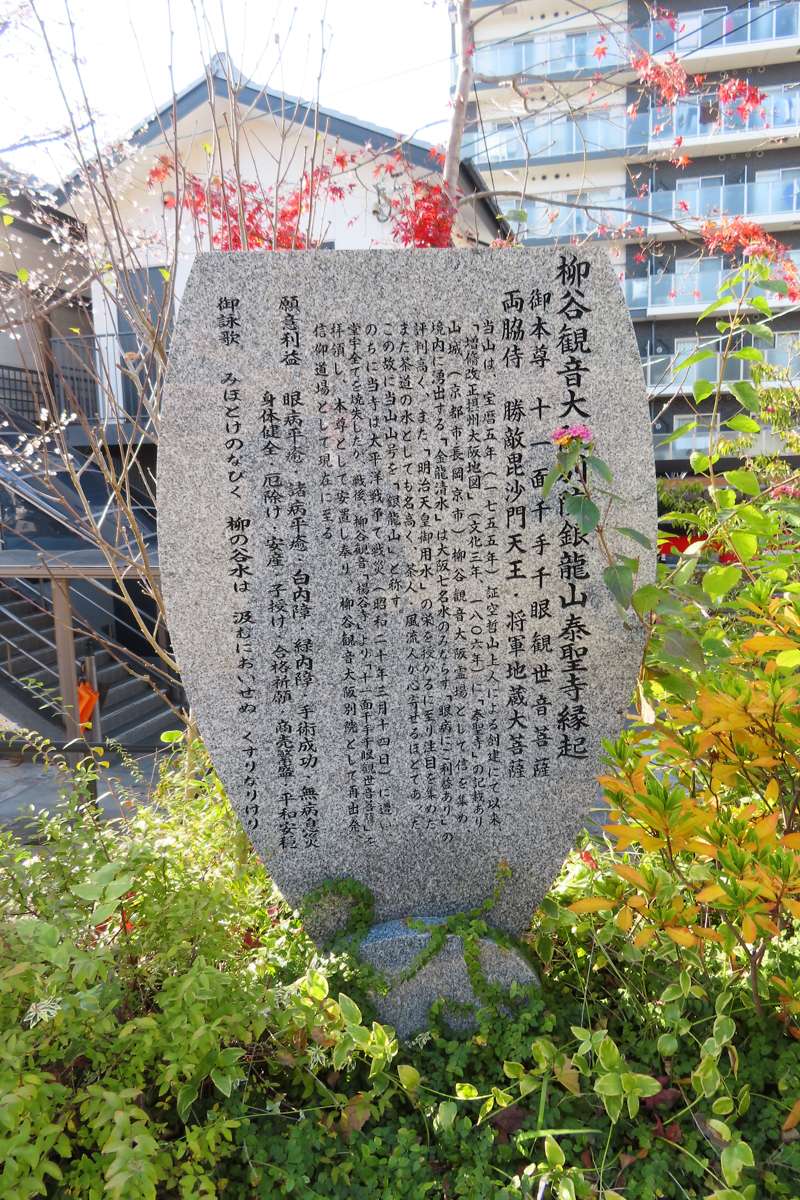 柳谷観音大 別院銀龍山泰聖寺縁起
御本尊 十一面千手千眼観世音菩薩
両脇侍 勝敵毘沙門天王・将軍地蔵大菩薩
当山は、宝暦五年(一七五五年)証空哲山上人による創建にて以来、
「増脩改正摂州大阪地図」(文化三年、一八〇六年)に「泰聖寺」の記載あり
山城(京都市長岡京市)柳谷観音大阪霊場として、信を集め
境内に湧出する「金龍清水」は大阪七名水のみならず、眼病に「利益あり」の
評判高く、また「明治天皇御用水」の栄を授かるに至り注目を集めた
また茶道の水としても名高く、茶人、風流人が心寄せるほどであった
この故に当山山号を「銀龍山」と称す
のちに当寺は太平洋戦争で戦災(昭和二十年三月十四日)に遭い
堂宇全てを焼失したが、戦後、柳谷観音「楊谷寺」より「十一面千手千眼観世音菩薩」を
拝領し、本尊として安置し奉り、柳谷観音大阪別院として再出発、
信仰道場として現在に至る
願意利益 眼病平癒・諸病平癒・白内障・緑内障・手術成功・無病息災
身体健全・厄除け・安産・子授け・合格祈願・商売繁盛・平和安穏
御詠歌 みほとけのなびく 柳の谷水は 汲むにおいせぬ くすりなりけり